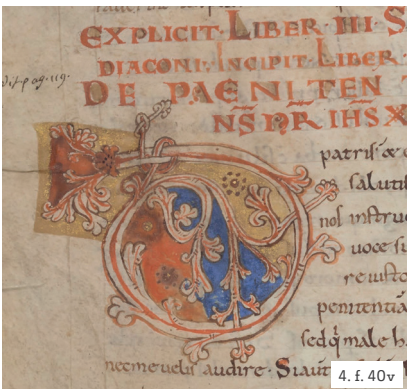 EXPLICIT·LIBER·III·S
DIACONI·INCIPIT·LIBER·
DE PAENITEN
N̄S D̄N̄R IHS̄X
patris & 
salutis
nos instruc
voce su
penitentia
sedq̄ male h
necme velis audire· Siaut
4. f. 40v